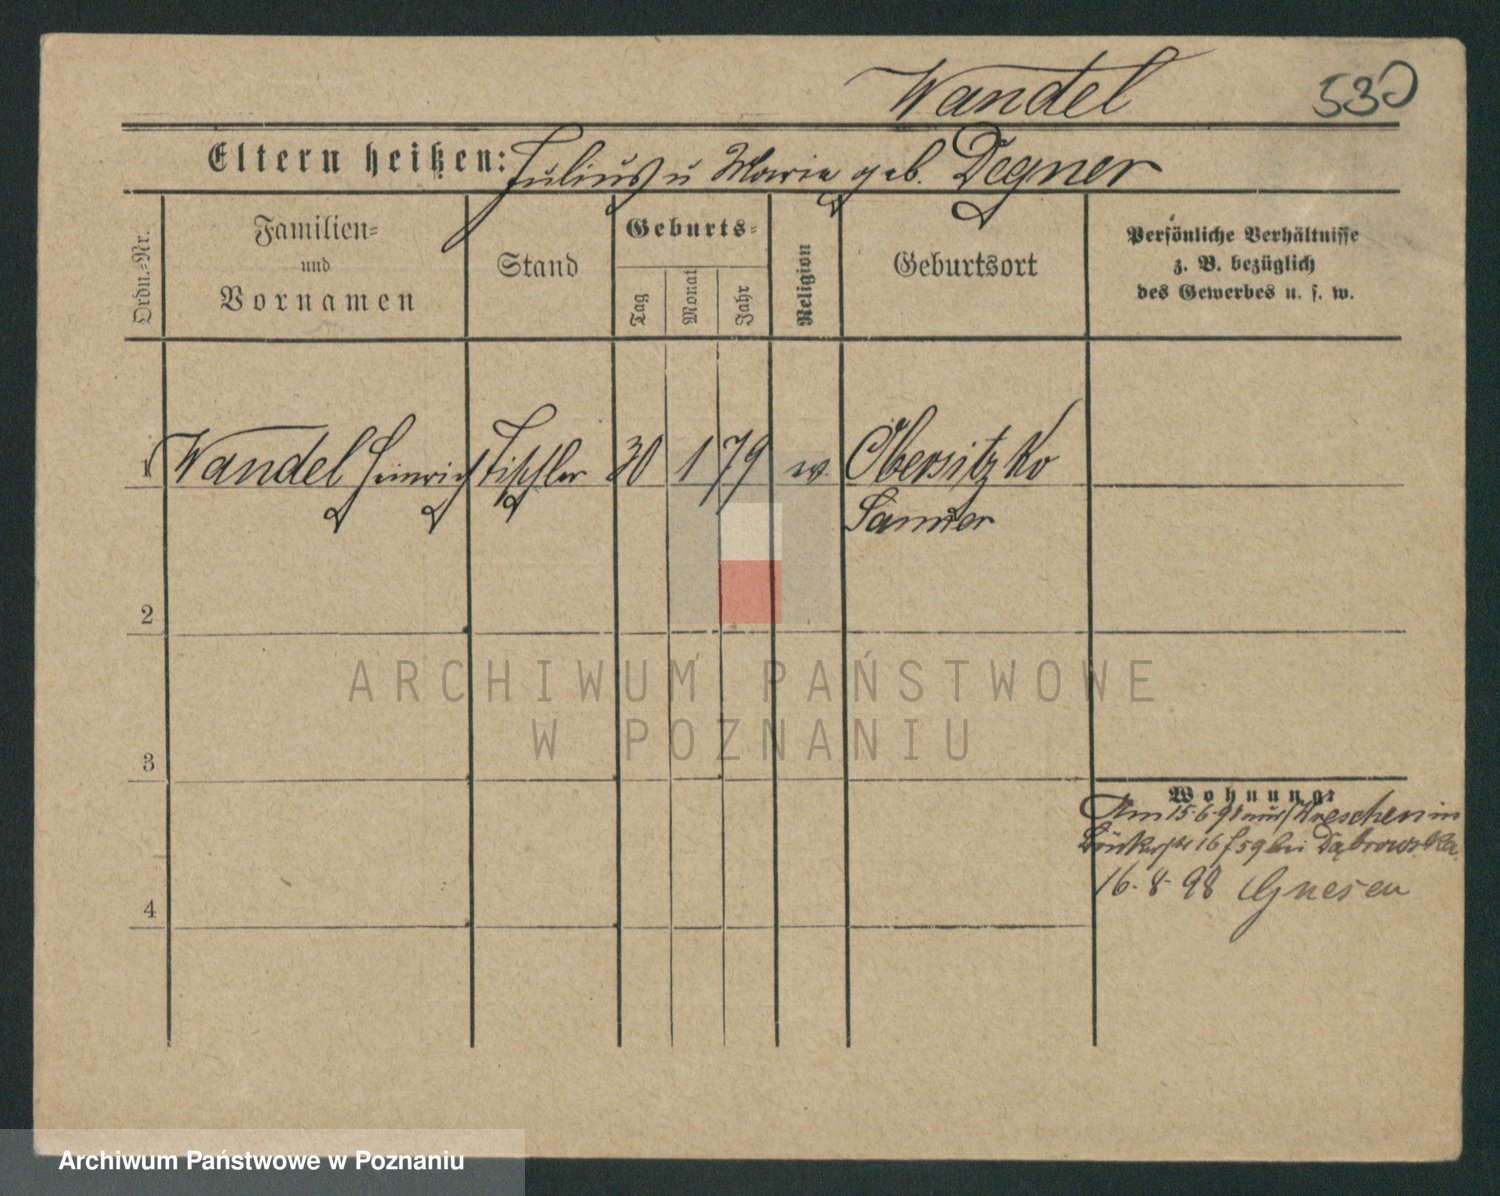 Wandel 530
Eltern heißen: Julius u Maria geb. Degner
Ordn.-Nr.
Familien-
und
Vornamen
Stand
Geburts-
Tag
Monat
Jahr
Religion
Geburtsort
Persönliche Verhältnisse
z. B. bezüglich
des Gewerbes u. s. w.
1 Wandel Heinrich Tischler 30 1 79 ev. Obersitzko
Samter
2
3
4
Wohnung:
Am 15.6.98 aus Wreschen in
16 bei Dąbrowska
16.8.98 Gnesen
ARCHIWUM PAŃSTWOWE
W POZNANIU
Archiwum Państwowe w Poznaniu